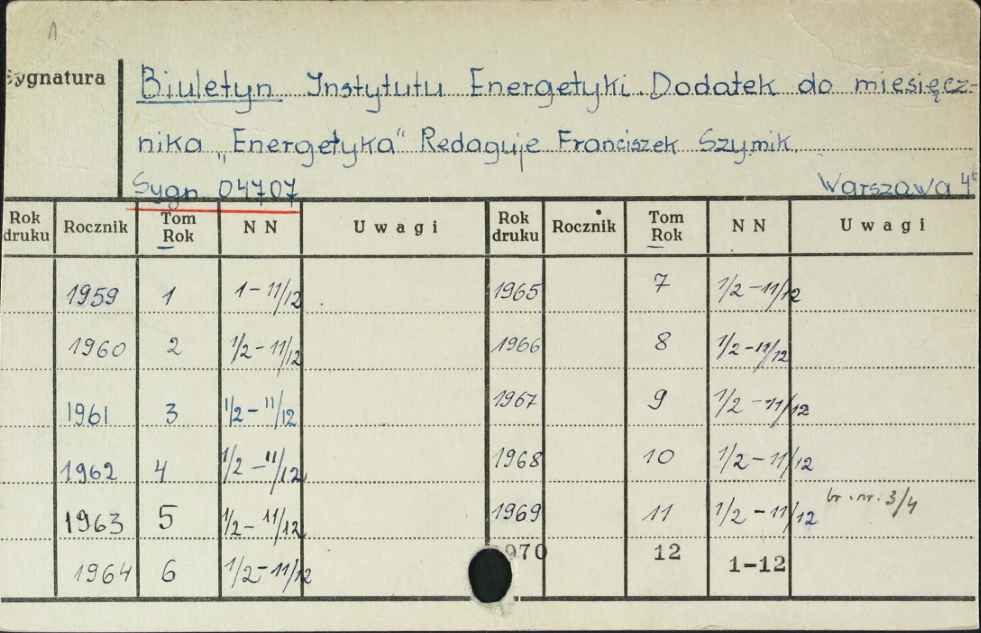 1
Sygnatura
Biuletyn Instytutu Energetyki. Dodatek do miesięcz-
nika „Energetyka" Redaguje Franciszek Szymik.
Sygn 04707 Warszawa 4°
Rok druku Rocznik Tom Rok NN Uwagi Rok druku Rocznik Tom Rok NN Uwagi
1959 1 1-11/12 1965 7 1/2-11/12
1960 2 1/2-11/12 1966 8 1/2-11/12
1961 3 1/2-11/12 1967 9 1/2-11/12
1962 4 1/2-11/12 1968 10 1/2-11/12
1963 5 1/2-11/12 1969 11 1/2-11/12 br. nr. 3/4
1964 6 1/2-11/12 1970 12 1-12